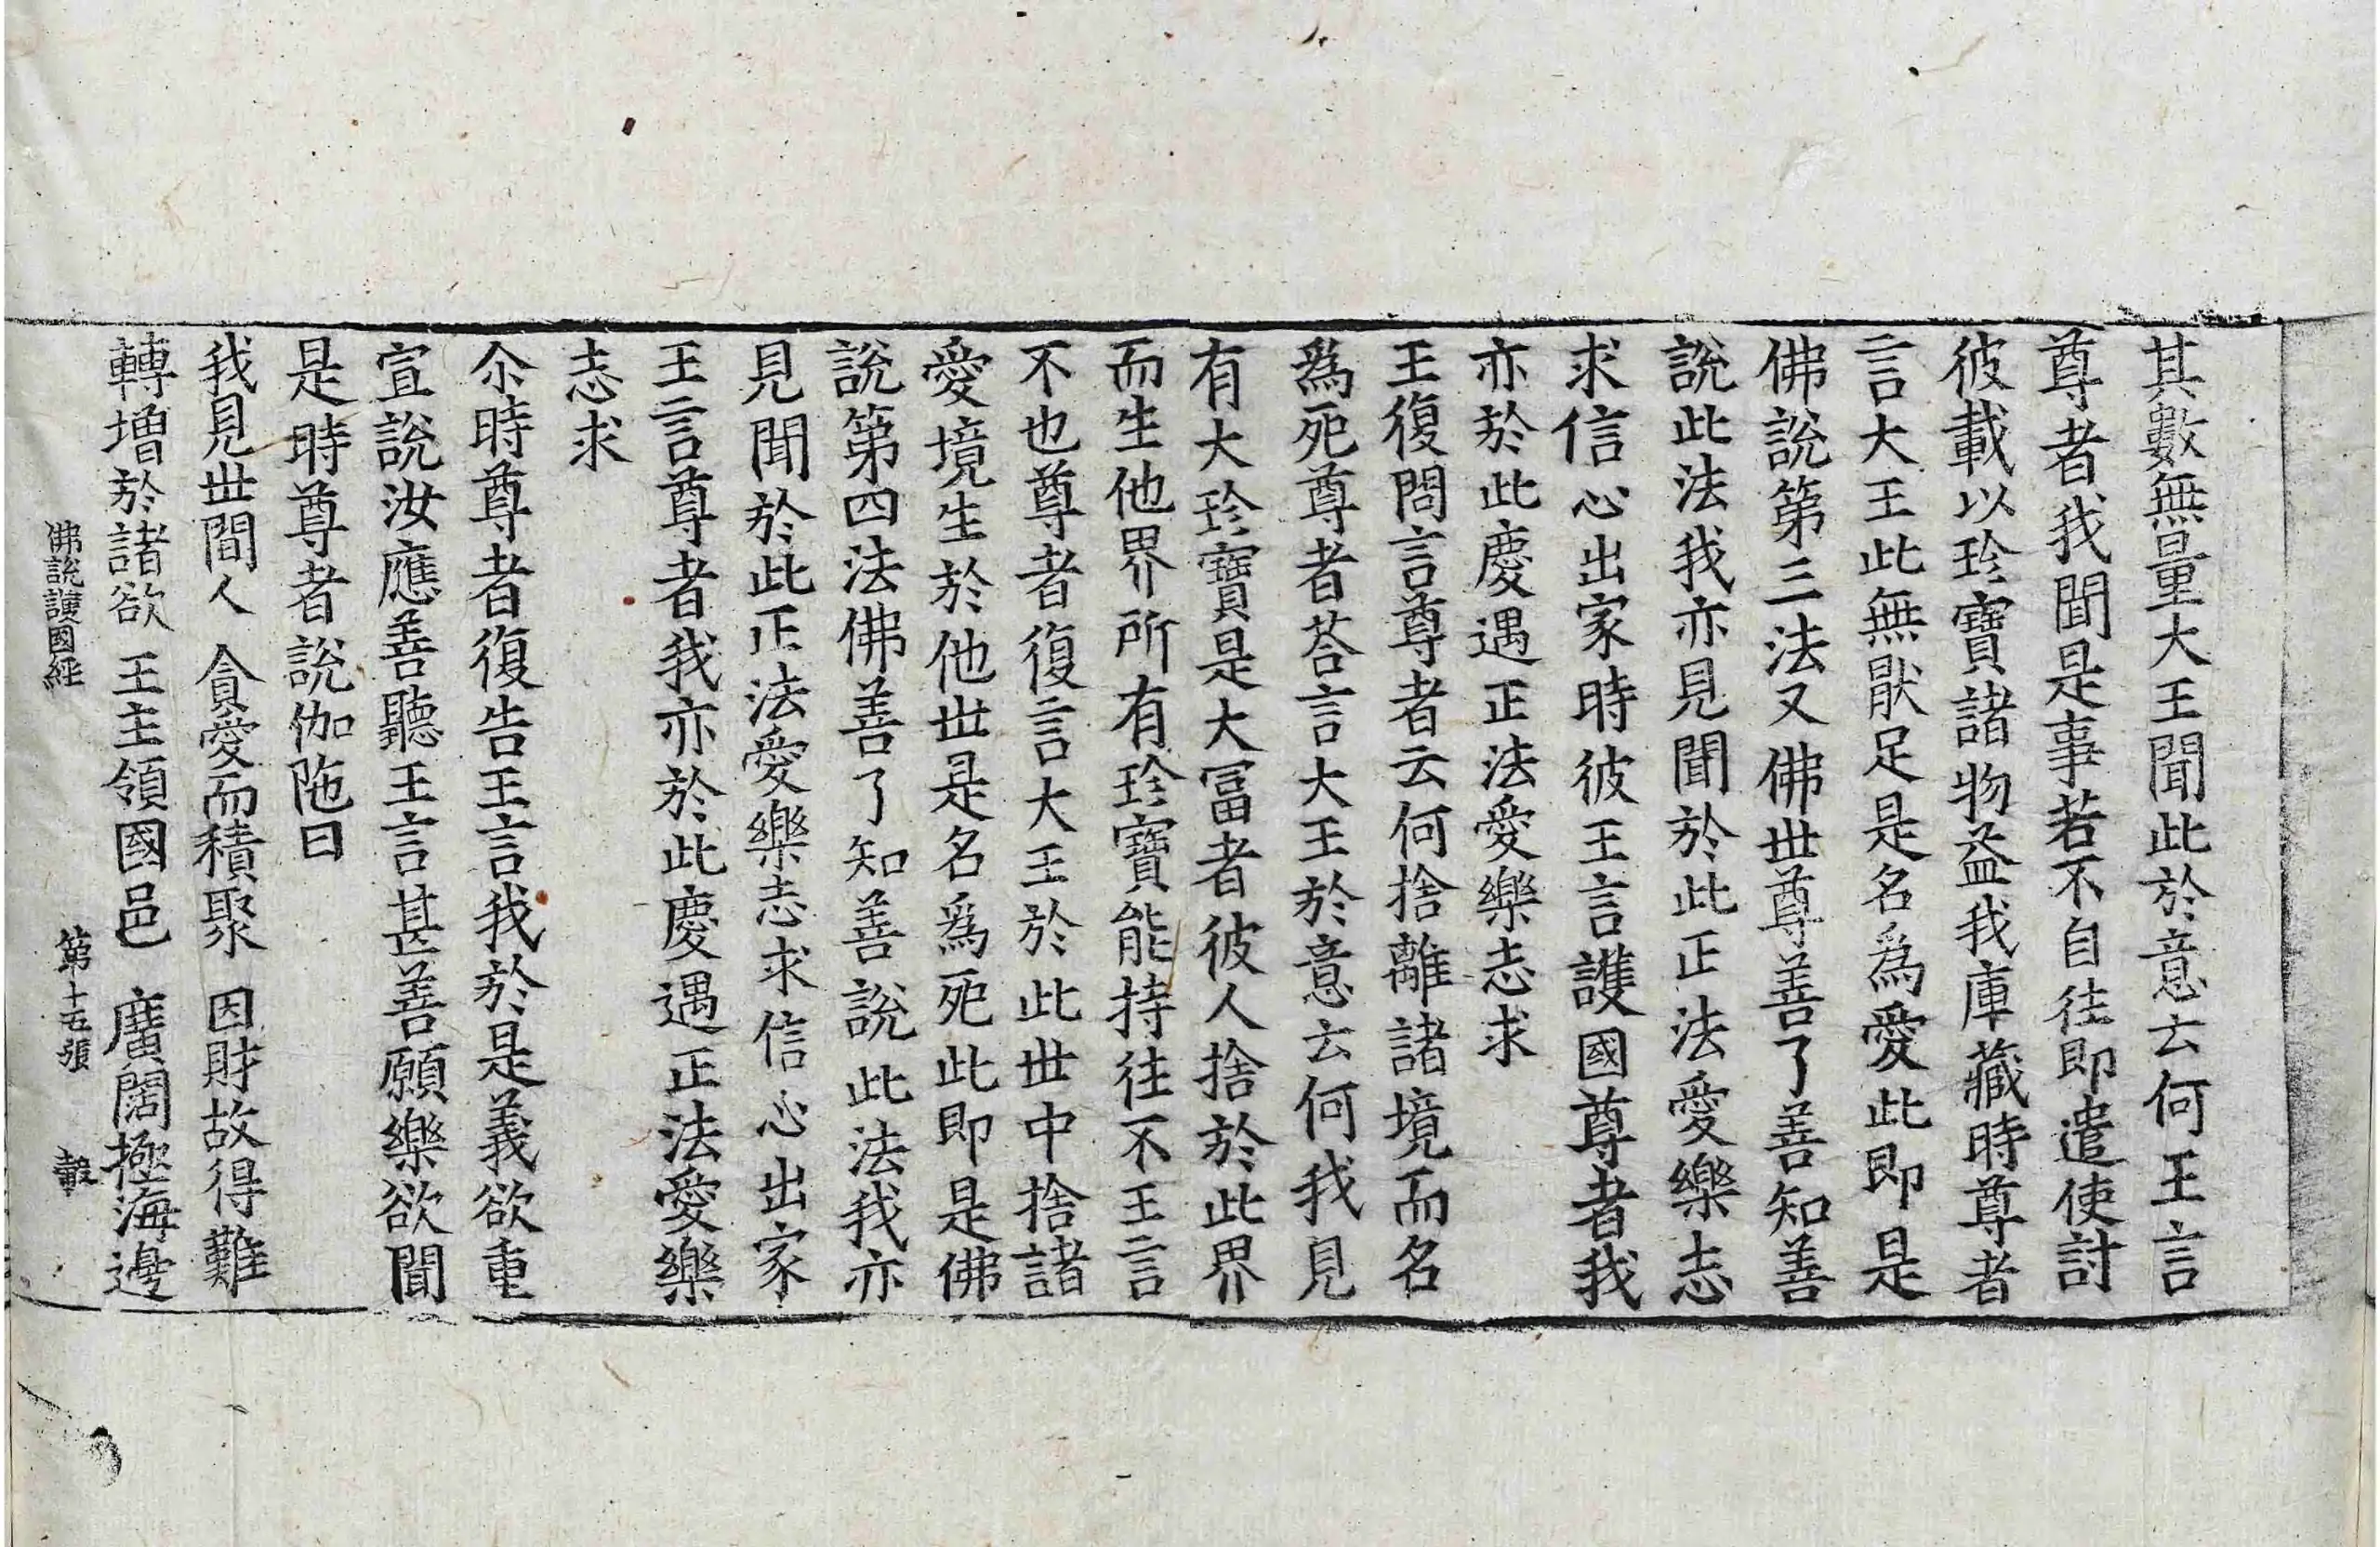 其數無量大王聞此於意云何王言
尊者我聞是事若不自往即遣使討
彼載以珍寶諸物益我庫藏時尊者
言大王此無猒足是名爲愛此即是
佛說第三法又佛世尊善了善知善
說此法我亦見聞於此正法愛樂志
求信心出家時彼王言護國尊者我
亦於此慶遇正法愛樂志求
王復問言尊者云何捨離諸境而名
爲死尊者荅言大王於意云何我見
有大珍寶是大冨者彼人捨於此界
而生他界所有珍寶能持往不王言
不也尊者復言大王於此世中捨諸
愛境生於他世是名爲死此即是佛
說第四法佛善了知善說此法我亦
見聞於此正法愛樂志求信心出家
王言尊者我亦於此慶遇正法愛樂
志求
尒時尊者復告王言我於是義欲重
宣說汝應善聽王言甚善願樂欲聞
是時尊者說伽陁曰
我見世間人 貪愛而積聚 因財故得難
轉增於諸欲 王主領國邑 廣闊極海邊
佛說護國經 第十五張 轂